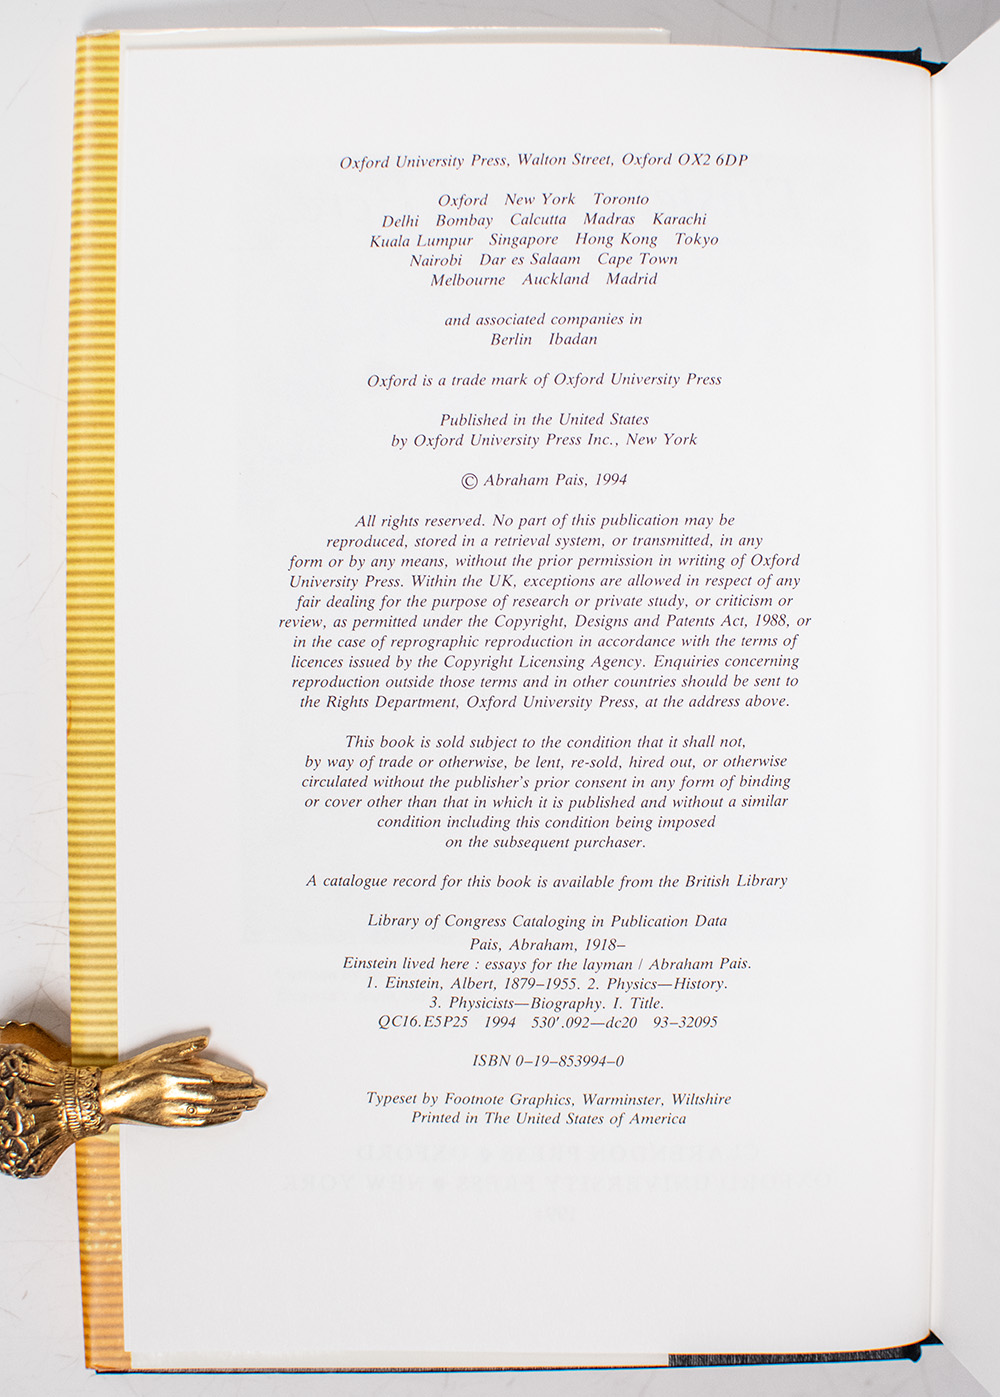 Oxford University Press, Walton Street, Oxford OX2 6DP
Oxford New York Toronto
Delhi Bombay Calcutta Madras Karachi
Kuala Lumpur Singapore Hong Kong Tokyo
Nairobi Dar es Salaam Cape Town
Melbourne Auckland Madrid
and associated companies in
Berlin Ibadan
Oxford is a trade mark of Oxford University Press
Published in the United States
by Oxford University Press Inc., New York
© Abraham Pais, 1994
All rights reserved. No part of this publication may be
reproduced, stored in a retrieval system, or transmitted, in any
form or by any means, without the prior permission in writing of Oxford
University Press. Within the UK, exceptions are allowed in respect of any
fair dealing for the purpose of research or private study, or criticism or
review, as permitted under the Copyright, Designs and Patents Act, 1988, or
in the case of reprographic reproduction in accordance with the terms of
licences issued by the Copyright Licensing Agency. Enquiries concerning
reproduction outside those terms and in other countries should be sent to
the Rights Department, Oxford University Press, at the address above.
This book is sold subject to the condition that it shall not,
by way of trade or otherwise, be lent, re-sold, hired out, or otherwise
circulated without the publisher's prior consent in any form of binding
or cover other than that in which it is published and without a similar
condition including this condition being imposed
on the subsequent purchaser.
A catalogue record for this book is available from the British Library
Library of Congress Cataloging in Publication Data
Pais, Abraham, 1918–
Einstein lived here : essays for the layman / Abraham Pais.
1. Einstein, Albert, 1879–1955. 2. Physics—History.
3. Physicists—Biography. I. Title.
QC16.E5P25 1994 530'.092—dc20 93–32095
ISBN 0–19–853994–0
Typeset by Footnote Graphics, Warminster, Wiltshire
Printed in The United States of America